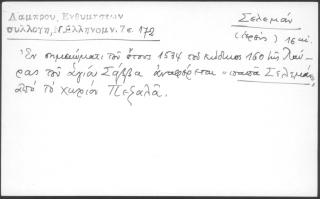 Λάμπρου, Ἐνθυμήσεων
συλλογή, Ν.Ἑλληνομν. 7 σ. 172
Σελεμάν
(ἱερεύς) 16 αἰ.
Ἐν σημειώματι τοῦ ἔτους 1534 τοῦ κώδικος 160 τῆς Λαύ-
ρας τοῦ ἁγίου Σάββα ἀναφέρεται "παπᾶ Σελεμάν,
ἀπό τό χωρίον Πεζαλᾶ.